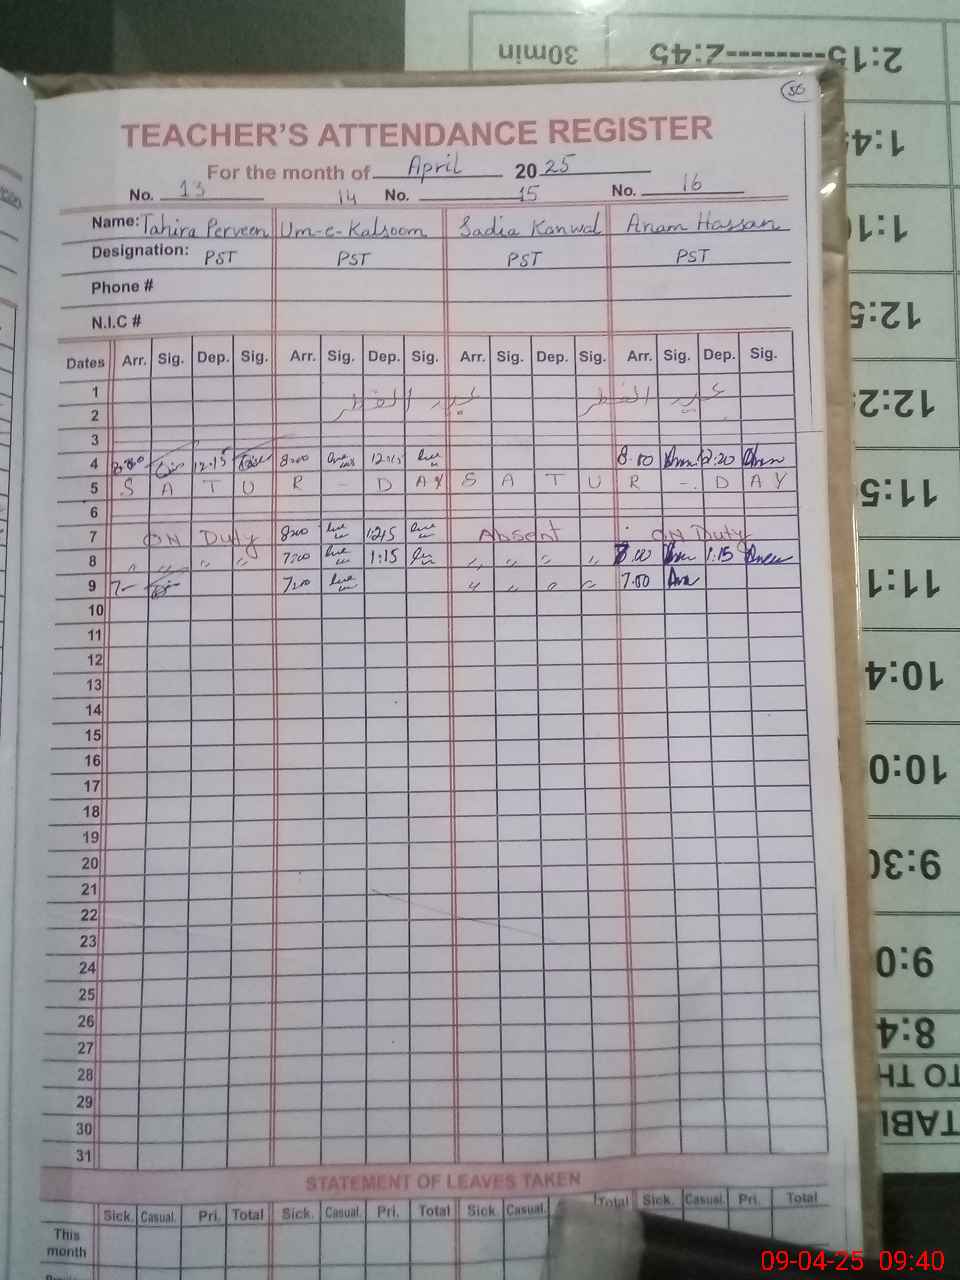 50
TEACHER'S ATTENDANCE REGISTER
For the month of April 2025
No. 13 14 No. 15 No. 16
Name: Tahira Perveen Um-e-Kalsoom Sadia Kanwal Anam Hassan
Designation: PST PST PST PST
Phone #
N.I.C #
Dates Arr. Sig. Dep. Sig. Arr. Sig. Dep. Sig. Arr. Sig. Dep. Sig. Arr. Sig. Dep. Sig.
1 عید الفطر عید الفطر
2
3
4 8:00 12:15 8:00 12:15 8:00 12:20
5 S A T U R - D A Y S A T U R - D A Y
6
7 ON Duty 8:00 12:15 Absent ON Duty
8 " " " " 7:00 1:15 " " " " 8:00 1:15
9 7- 7:00 " " " " 7:00
10
11
12
13
14
15
16
17
18
19
20
21
22
23
24
25
26
27
28
29
30
31
STATEMENT OF LEAVES TAKEN
Sick. Casual. Pri. Total Sick. Casual. Pri. Total Sick. Casual. Total Sick. Casual. Pri. Total
This
month
2:15---------2:45 30min
1:4
1:1
12:5
12:2
11:5
11:1
10:4
10:0
9:30
9:0
8:4
TO TH
TABL
09-04-25 09:40